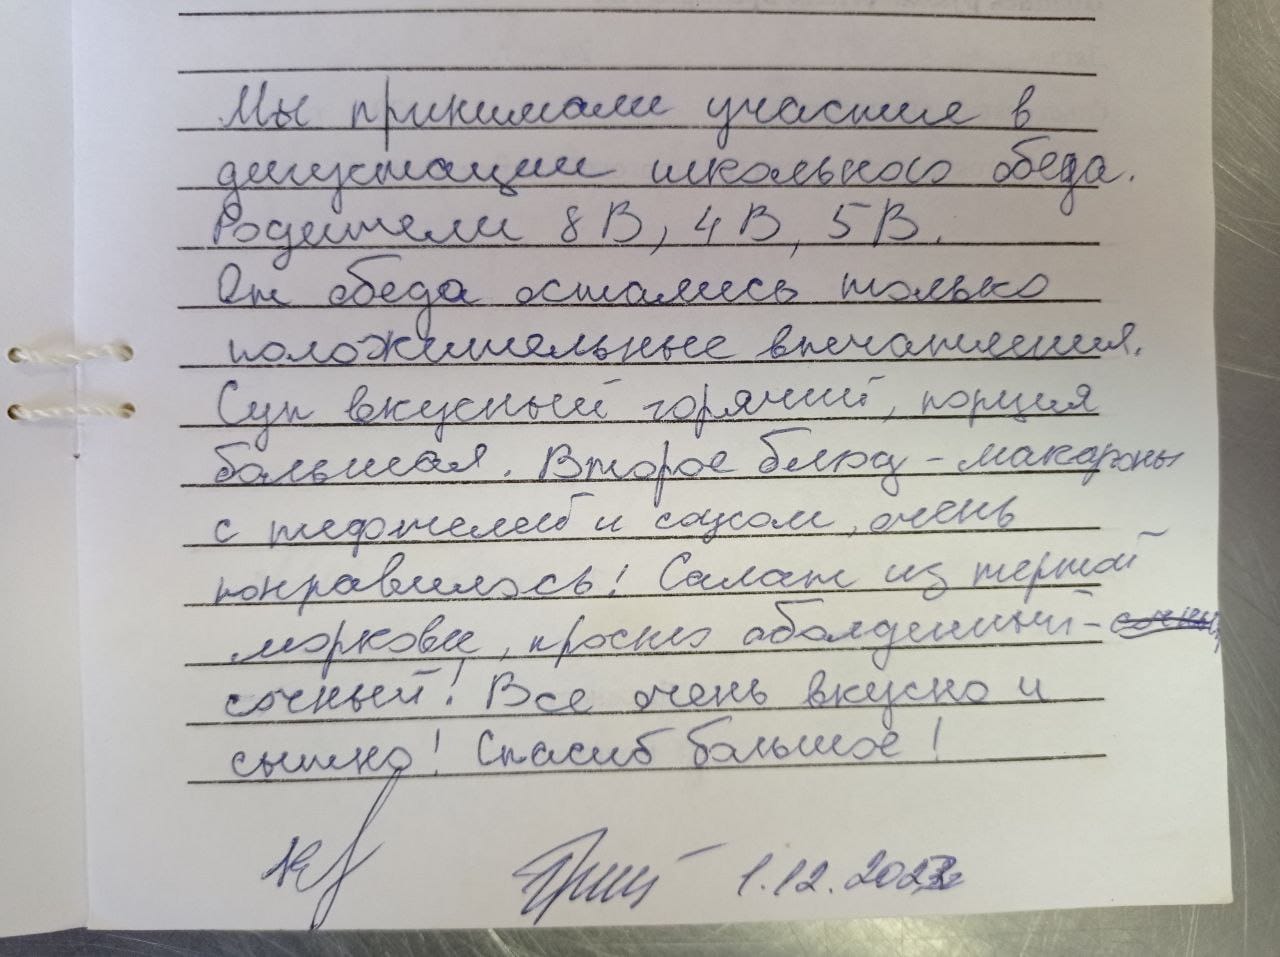 Мы принимали участие в
дегустации школьного обеда.
Родители 8 В, 4 В, 5 В.
От обеда остались только
положительные впечатления.
Суп вкусный горячий, порция
большая. Второе блюд - макароны
с тефтелей и соусом, очень
понравилось! Салат из тертой
моркови, просто аболденный -
сочный! Все очень вкусно и
сытно! Спасиб большое!
1.12.2023г